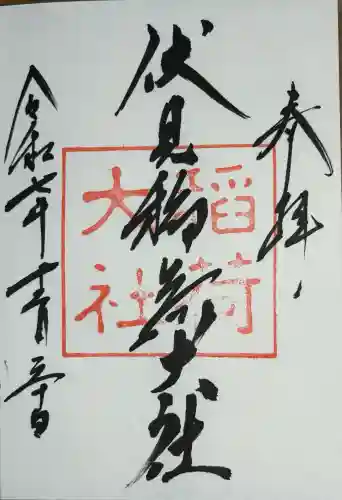 奉拝
伏見稲荷大社
稲荷
大社
令和七年十二月三十日